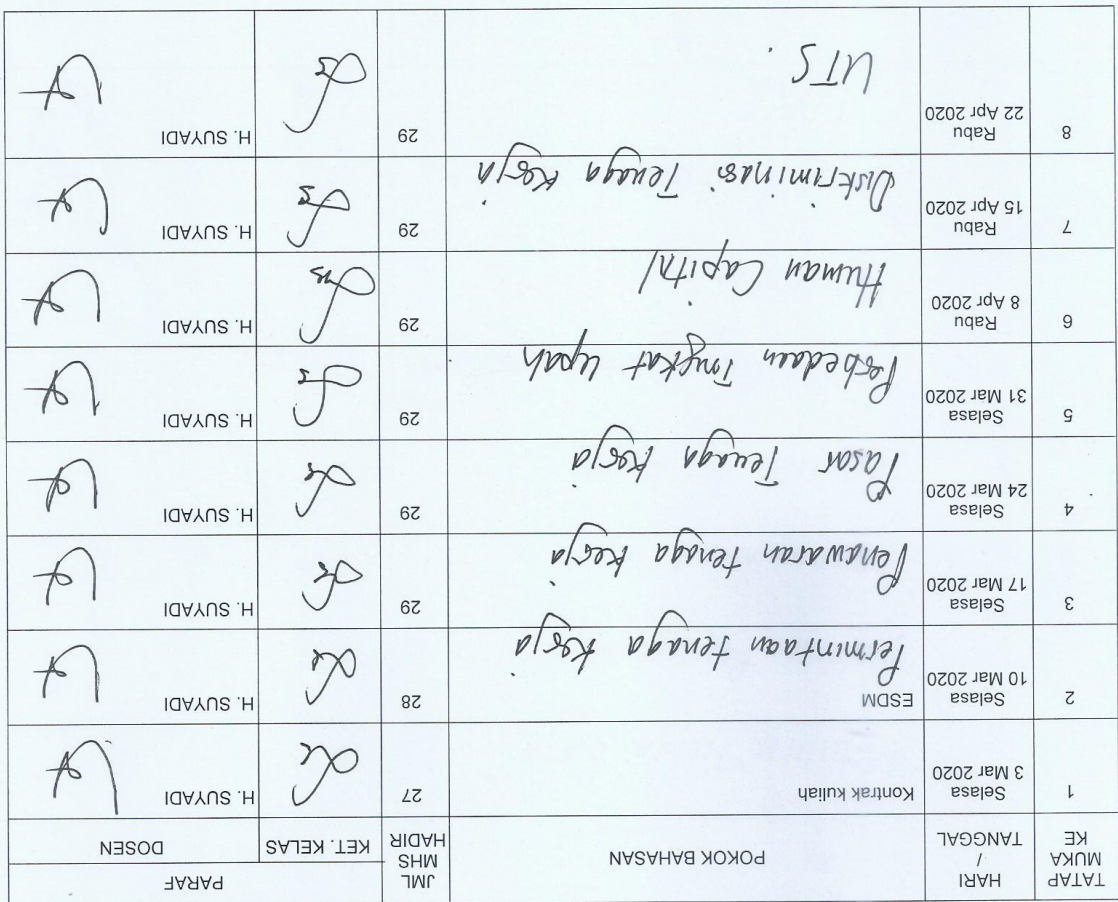 TATAP MUKA KE
HARI / TANGGAL
POKOK BAHASAN
JML MHS HADIR
PARAF
KET. KELAS
DOSEN
1
Selasa
3 Mar 2020
Kontrak kuliah
27
H. SUYADI
2
Selasa
10 Mar 2020
ESDM
Permintaan tenaga kerja
28
H. SUYADI
3
Selasa
17 Mar 2020
Penawaran tenaga kerja
29
H. SUYADI
4
Selasa
24 Mar 2020
Pasar Tenaga kerja
29
H. SUYADI
5
Selasa
31 Mar 2020
Perbedaan Tingkat upah
29
H. SUYADI
6
Rabu
8 Apr 2020
Human Capital
29
H. SUYADI
7
Rabu
15 Apr 2020
Diskriminasi Tenaga Kerja
29
H. SUYADI
8
Rabu
22 Apr 2020
UTS.
29
H. SUYADI